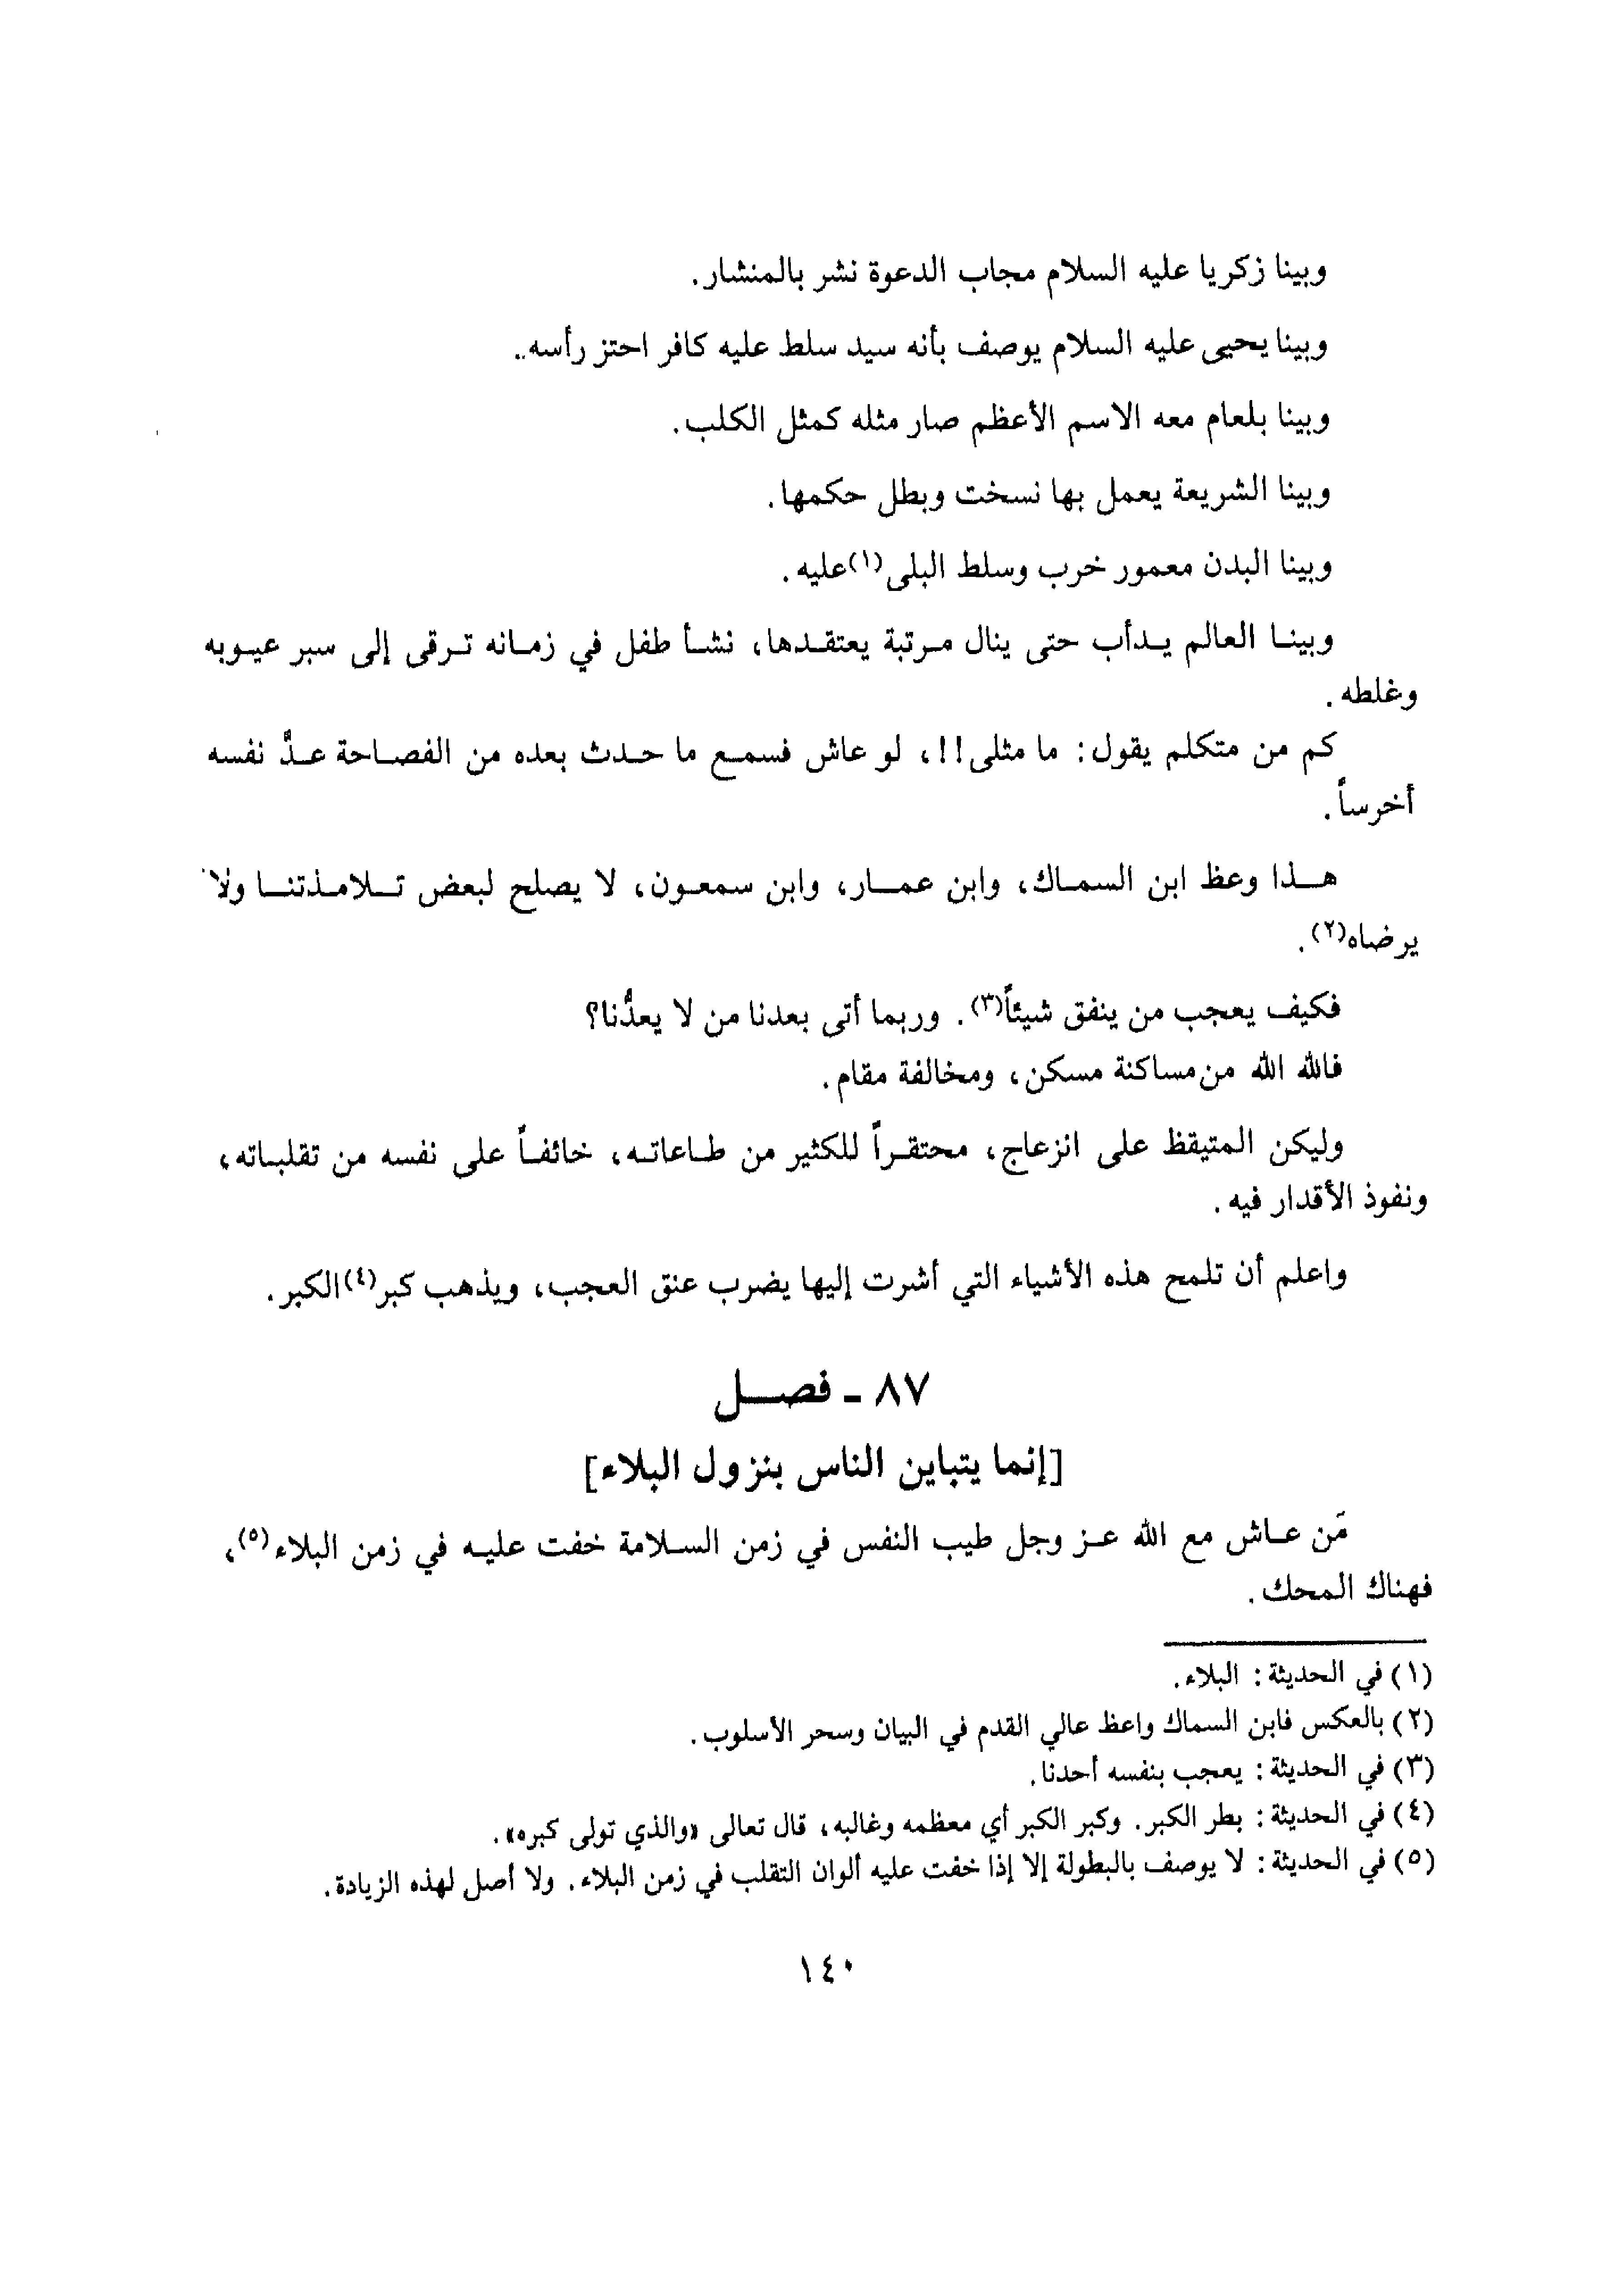 وبينا زكريا عليه السلام مجاب الدعوة نشر بالمنشار.
وبينا يحيى عليه السلام يوصف بأنه سيد سلط عليه كافر احتز رأسه..
وبينا بلعام معه الاسم الأعظم صار مثله كمثل الكلب.
وبينا الشريعة يعمل بها نسخت وبطل حكمها.
وبينا البدن معمور خرب وسلط البلى(١)عليه.
وبينا العالم يدأب حتى ينال مرتبة يعتقدها، نشأ طفل في زمانه ترقى إلى سبر عيوبه
وغلطه.
كم من متكلم يقول: ما مثلى!!، لو عاش فسمع ما حدث بعده من الفصاحة عدَّ نفسه
أخرساً.
هذا وعظ ابن السماك، وابن عمار، وابن سمعون، لا يصلح لبعض تلامذتنا ولا
يرضاه(٢).
فكيف يعجب من ينفق شيئاً(٣). وربما أتى بعدنا من لا يعدُّنا؟
فالله الله من مساكنة مسكن، ومخالفة مقام.
وليكن المتيقظ على انزعاج، محتقراً للكثير من طاعاته، خائفاً على نفسه من تقلباته،
ونفوذ الأقدار فيه.
واعلم أن تلمح هذه الأشياء التي أشرت إليها يضرب عنق العجب، ويذهب كبر(٤)الكبر.
٨٧ - فصل
[إنما يتباين الناس بنزول البلاء]
مَن عاش مع الله عز وجل طيب النفس في زمن السلامة خفت عليه في زمن البلاء(٥)،
فهناك المحك.
(١) في الحديثة: البلاء.
(٢) بالعكس فابن السماك واعظ عالي القدم في البيان وسحر الأسلوب.
(٣) في الحديثة: يعجب بنفسه أحدنا.
(٤) في الحديثة: بطر الكبر. وكبر الكبر أي معظمه وغالبه، قال تعالى «والذي تولى كبره».
(٥) في الحديثة: لا يوصف بالبطولة إلا إذا خفت عليه ألوان التقلب في زمن البلاء. ولا أصل لهذه الزيادة.
١٤٠